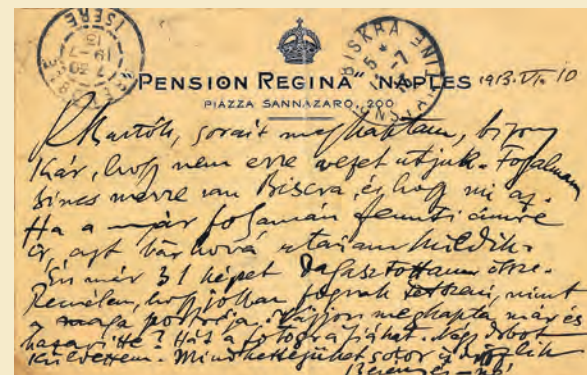 ISERE
"PENSION REGINA" NAPLES 1913. VI. 10
BISKRA
PIAZZA SANNAZARO, 200
Bartók, sorait megkaptam, bizony
kár, hogy nem erre vezet útjuk. Fogalmam
sincs merre van Biscra, és hogy mi az.
Ha a már folyamán fenti címre
ír, azt bárhová utánam küldik.
Én már 31 képet össze.
Remélem, hogy jobban fognak tetszeni, mint
a maga portréja. meghapta már és
hazavitte? Hát a fotográfiákat. Négy dobot
küldettem. Mindkettőjüket
Berény